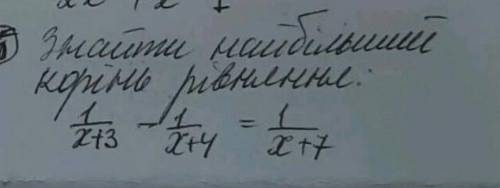 Знайти найбільший
корінь рівняння:
1/(x+3) - 1/(x+4) = 1/(x+7)